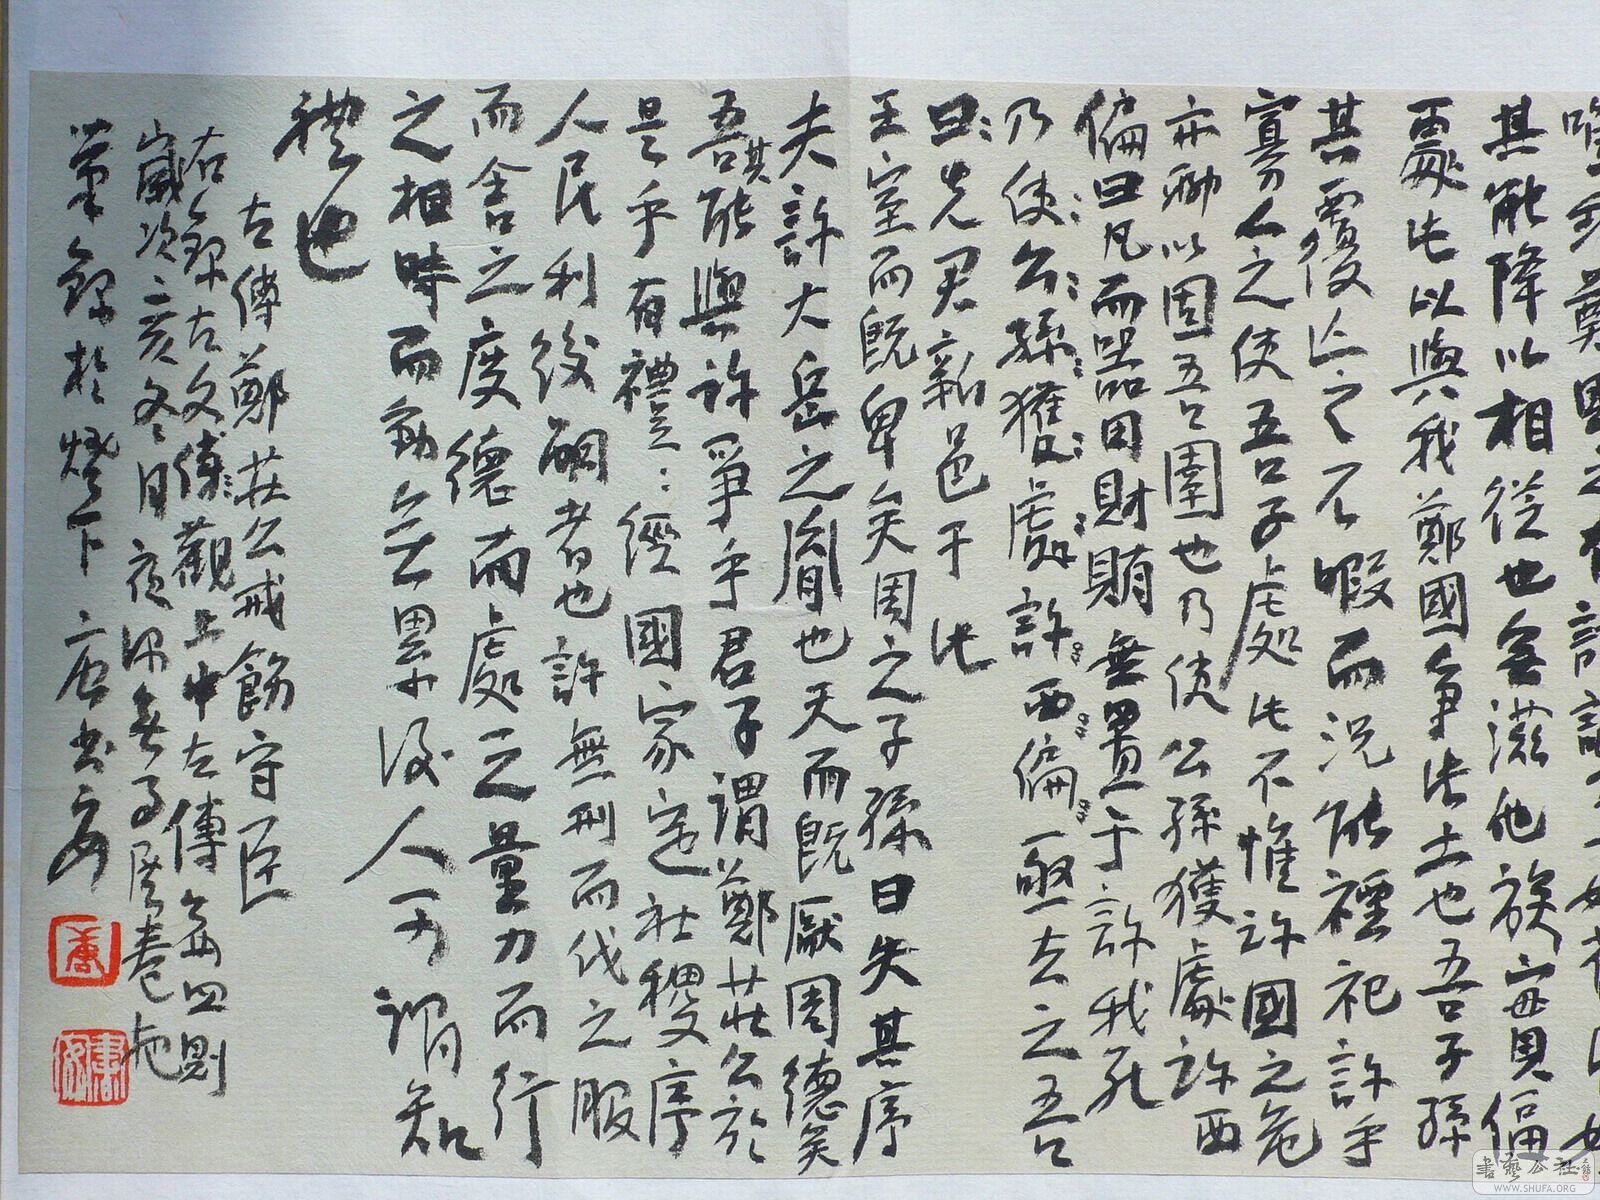 鄭國之有請謁
其能降以相從也無滋他族實偪
處此以與我鄭國爭此土也吾子孫
其覆亡之不暇而況能禋祀許乎
寡人之使吾子處此不惟許國之危
亦聊以固吾圉也乃使公孫獲處許西
偏曰凡而器用財賄無置于許我死
乃使公孫獲處許西偏亟去之吾
曰先君新邑于此
王室而既卑矣周之子孫日失其序
夫許大岳之胤也天而既厭周德矣
吾其能與許爭乎君子謂鄭莊公於
是乎有禮:經國家定社稷序
人民利後嗣者也許無刑而伐之服
而舍之度德而處之量力而行
之相時而動無累後人可謂知
禮也
左傳鄭莊公戒飭守臣
右錄古文傳觀止中左傳第四則
歲次丁亥冬月夜深無事展卷
筆錄於燈下唐書安
唐
書藝公社
WWW.SHUFA.ORG